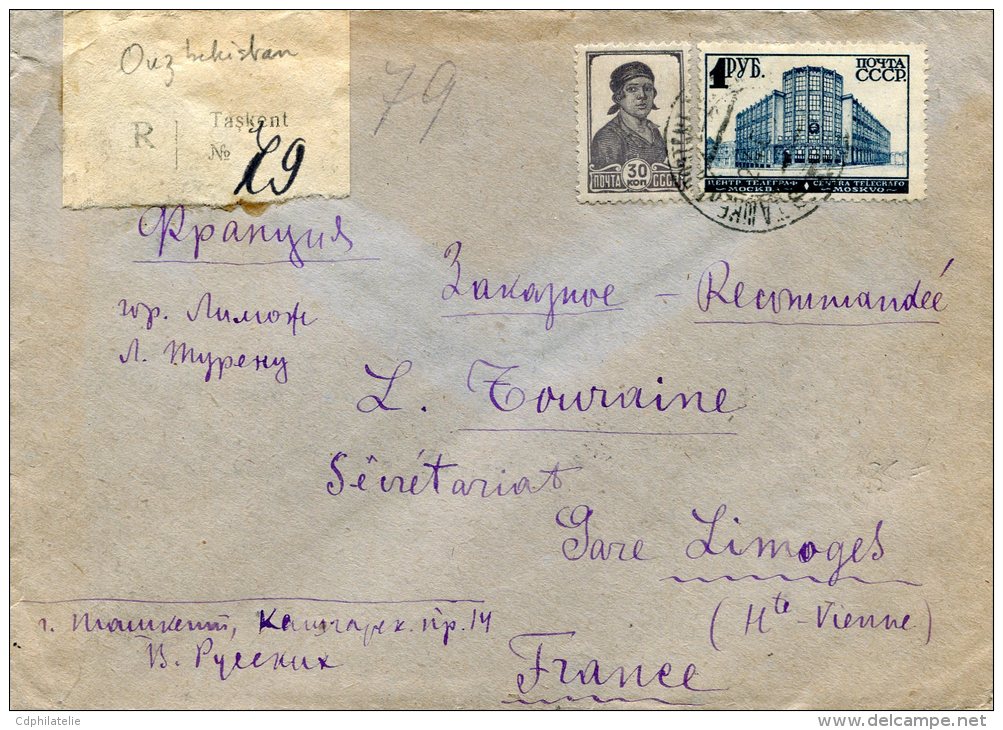 Ouzbekistan
R
Taşkent
№ 79
79
30
КОП.
ПОЧТА СССР
1 РУБ. ПОЧТА
СССР.
ЦЕНТР. ТЕЛЕГРАФ CENTRA TELEGRAFO
МОСКВА MOSKVO
Франция
Заказное - Recommandée
гор. Лимож
Л. Турену
L. Touraine
Sécrétariat
Gare Limoges
(Hte-Vienne)
France
г. Ташкент, Кашгарск. пр. 14
В. Русских
Cdphilatelie
delcampe.net